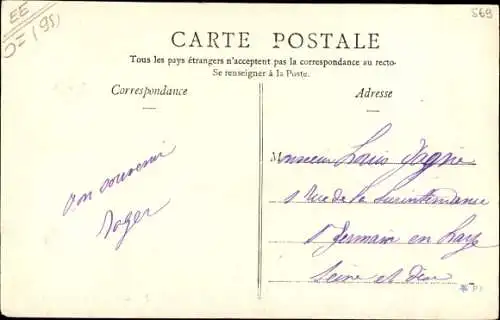 EE
(95)
569
CARTE POSTALE
Tous les pays étrangers n'acceptent pas la correspondance au recto-
Se renseigner à la Poste.
Correspondance
Adresse
Bon souvenir
Roger
Monsieur Louis
1 Rue de la Surintendance
St Germain en Laye
Seine et Oise